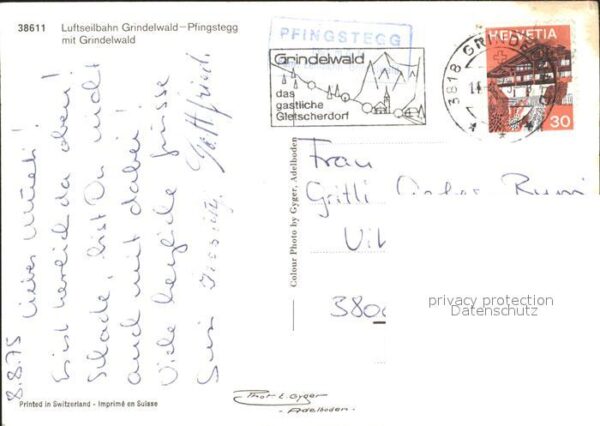 38611 Luftseilbahn Grindelwald–Pfingstegg
mit Grindelwald
PFINGSTEGG
Grindelwald
das
gastliche
Gletscherdorf
3818 GRINDEL
HELVETIA
30
8.8.75
Es ist herrlich da oben!
Schade, bist Du nicht
auch mit dabei!
Viele herzliche Grüsse
Frau
Gritli
380
Colour Photo by Gyger, Adelboden
privacy protection
Datenschutz
Printed in Switzerland - Imprimé en Suisse
Phot E. Gyger
Adelboden